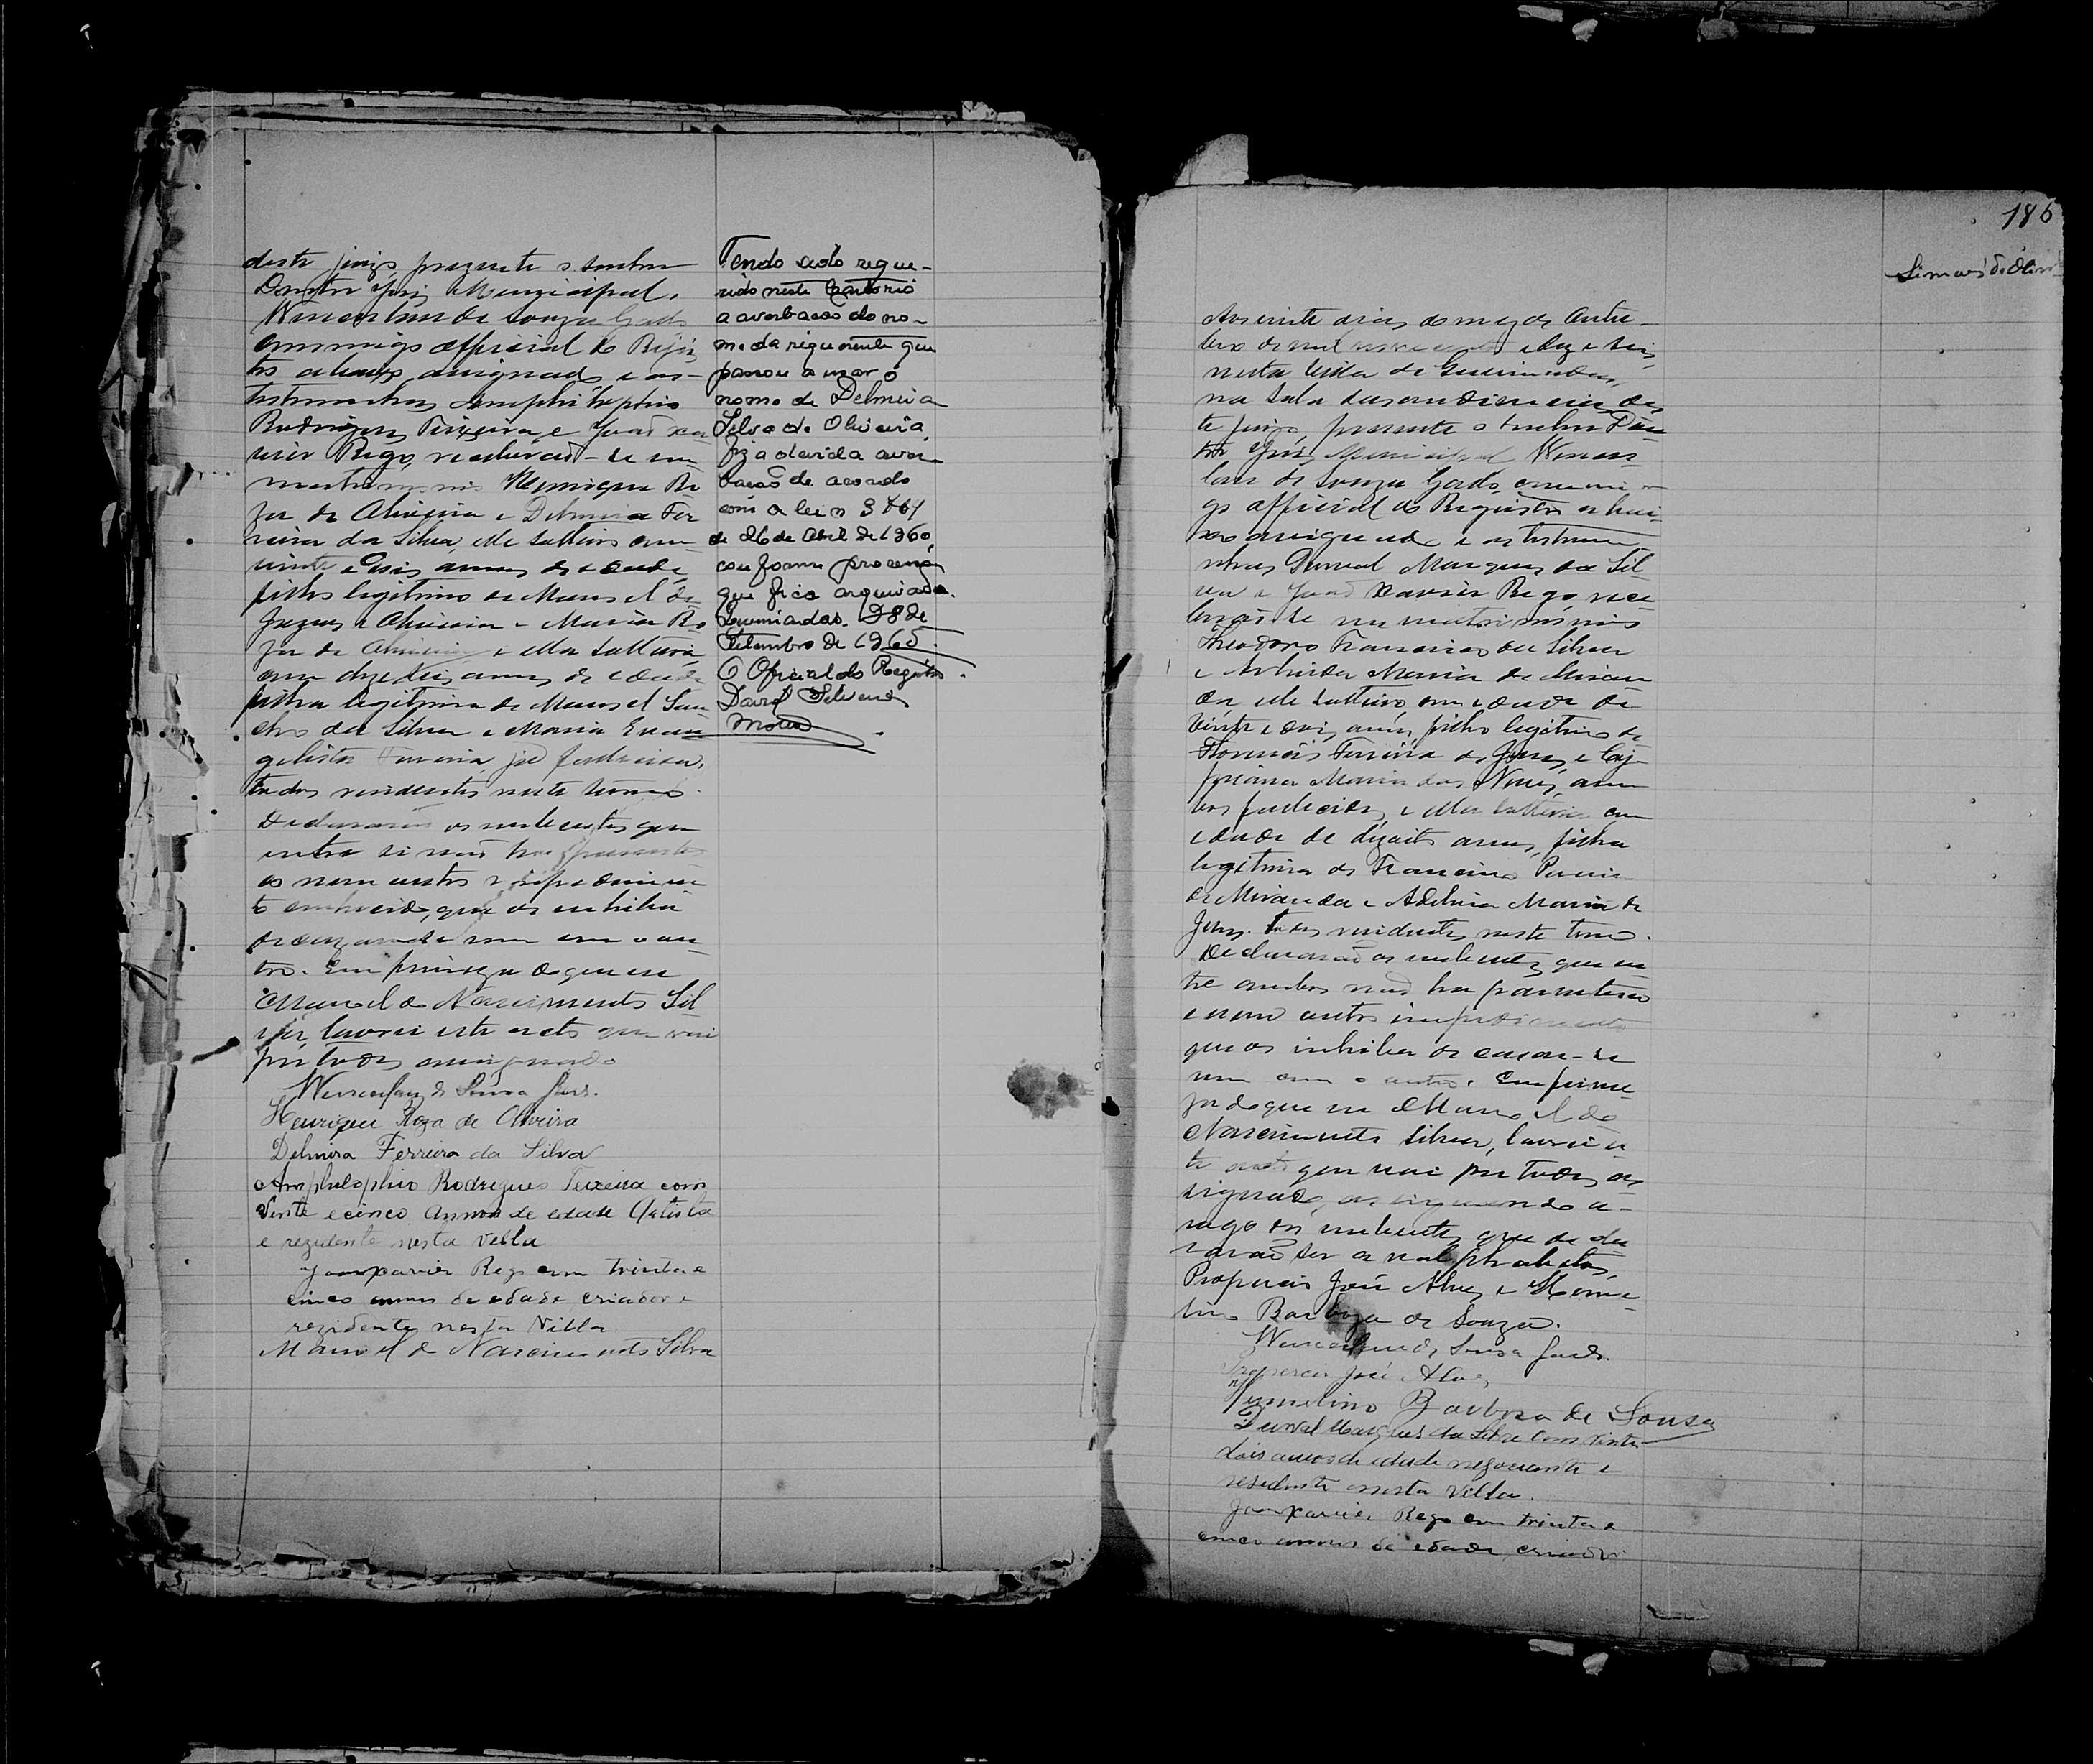 deste juizo prezente o senhor
Doutor Juiz Municipal,
Wencesláu de Souza
commigo official do Regis
tro abaixo assignado e as
testemunhas Amphilophio
Rodrigues Teixeira e João Xa
vier Rego, receberão-se em
matrimonio Henrique Ro
za de Oliveira e Delmira Fer
reira da Silva, elle solteiro com
vinte e dois annos de edade,
filho legitimo de Manoel de
Jezus e Oliveira e Maria Ro
za de Oliveira e ella solteira
com dezeseis annos de edade
filha legitima de Manoel San
da Silva e Maria Evan
gelista Ferreira, já fallecida,
todos residentes neste termo.
Declararão os nubentes que
entre si não ha parentesco
e nem outro impedimen
to conhecido, que os inhiba
de cazarem-se um com o ou
tro. Em firmeza do que eu
Manoel do Nascimento Sil
va, lavrei este acto que vai
por todos assignado
Wenceslau de Souza
Henrique Roza de Oliveira
Delmira Ferreira da Silva
Amphilophio Rodrigues Teixeira com
Vinte e cinco annos de edade Artista
e rezidente nesta Villa
João Xavier Rego com trinta e
cinco annos de edade, criador e
rezidente nesta Villa
Manoel do Nascimento Silva
Tendo sido reque-
rido neste Cartorio
a averbação do no-
me da requerente que
passou a usar o
nome de Delmira
Silva de Oliveira,
fiz a devida aver
bação de acordo
com a lei n 3764
de 26 de Abril de 1960,
conforme processo
que fica arquivado.
Queimadas. 28 de
Setembro de 1965.
O Oficial do Registro
David Silva
Motta
186
Simões de Olivei
Aos vinte dias do mez de Outu-
bro de mil novecentos e dez e seis,
nesta Villa de Queimadas,
na sala das audiencias des
te juizo, presente o senhor Dou
tor Juiz Municipal Wences-
lau de Souza commi
go official do Registro abai-
xo assignado e as testemu
nhas Durval Marques da Sil-
va e João Xavier Rego, rece
berão-se em matrimonio
Theodoro Francisco da Silva
e Maria de Miran
da elle solteiro, com edade de
vinte e dois annos, filho legitimo de
Ferreira de Jezus, e
Maria das Neves, am
bos fallecidos, e ella solteira com
edade de dezoito annos, filha
legitima de Francisco Pereira
de Miranda e Adelina Maria de
Jezus. todos residentes neste termo.
Declararão os nubentes que en
tre ambos não ha parentesco
e nem outro impedimento
que os inhiba de cazar-se
um com o outro. Em firme
za do que eu Manoel do
Nascimento Silva, lavrei es
te acto que vai por todos as
signado, assignando a-
rogo dos nubentes, que decla
rarão ser analphabetos,
José Alves e
Barboza de Souza.
Wenceslau de Souza
José Alves
Barbosa de Sousa
Durval Marques da Silva com vinte
dois annos de edade negociante e
residente nesta Villa.
João Xavier Rego com trinta e
cinco annos de edade, criador